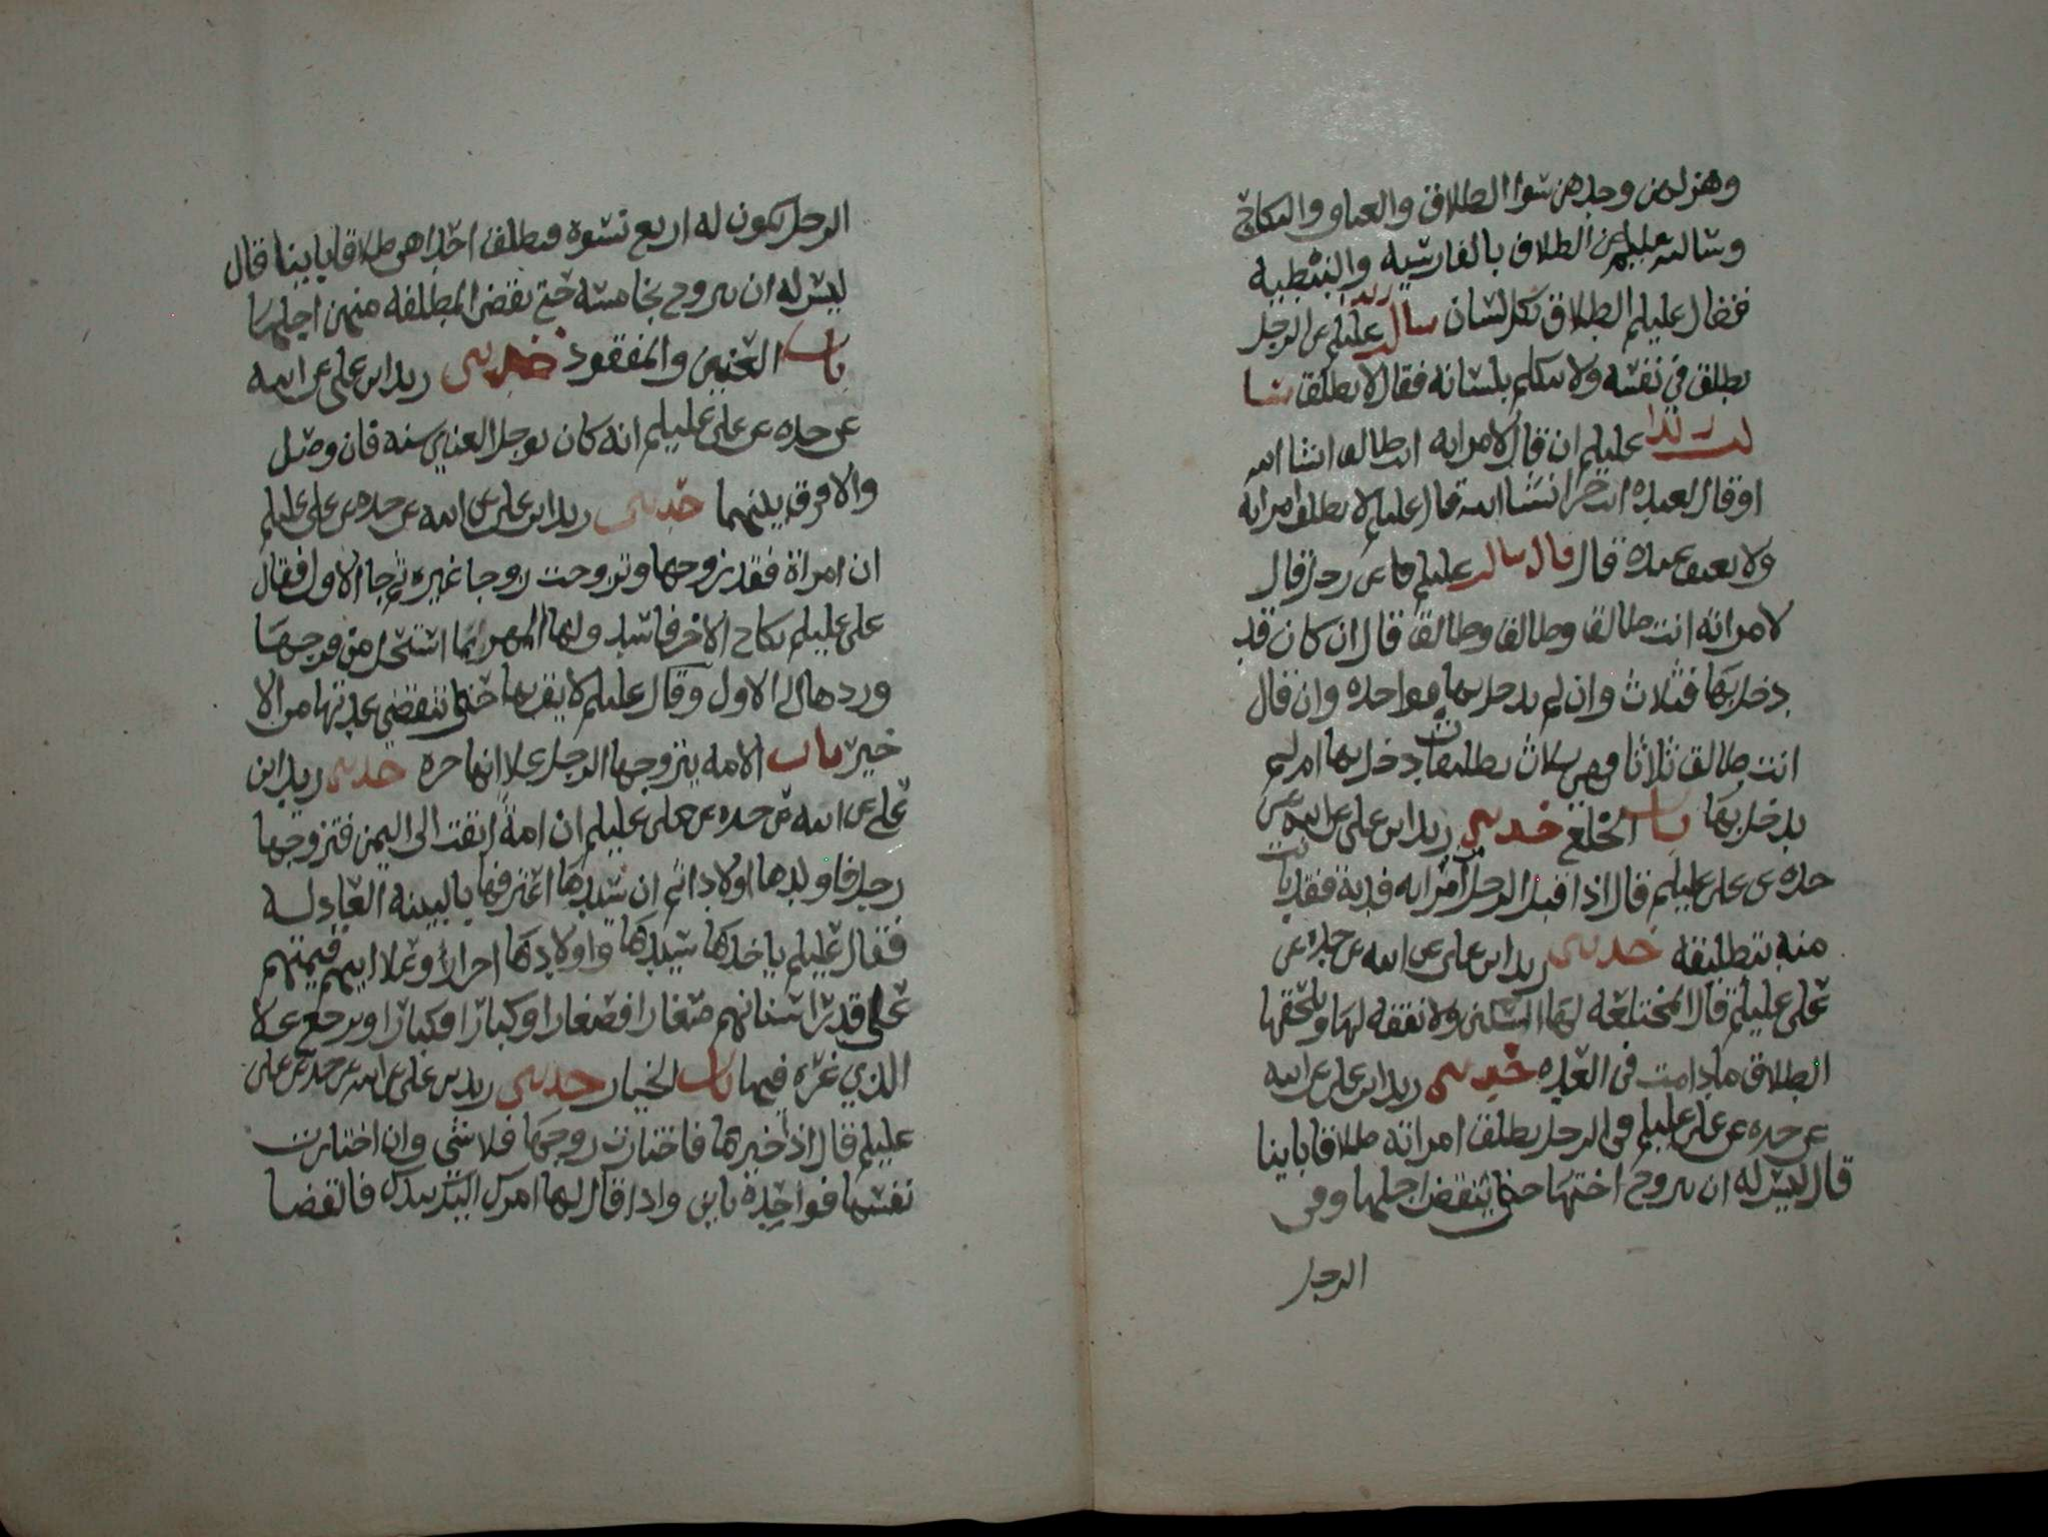 وهزلهن وجدهن سوا الطلاق والعتاق والنكاح
وسالته عليلم عن الطلاق بالفارسية والنبطية
فقال عليلم الطلاق بكل لسان سالت زيدا عليلم عن الرجل
يطلق في نفسه ولا يتكلم بلسانه فقال لا يطلق سا
لت زيدا عليلم ان قال لامراته انت طالق انشا الله
او قال لعبده انت حر انشا الله قال عليلم لا يطلق امراته
ولا يعتق عبده قال قال سالته عليلم عن رجل قال
لامراته انت طالق وطالق وطالق قال ان كان قد
دخل بها فثلاث وان لم يدخل بها فواحده وان قال
انت طالق ثلاثا فهي ثلاث تطليقات دخل بها ام لم
يدخل بها باب الخلع حدثني زيد ابن علي عن ابيه عن
جده عن علي عليلم قال اذا قبل الرجل من امراته فدية فقد بانت
منه بتطليقة حدثني زيد ابن علي عن ابيه عن جده عن
علي عليلم قال المختلعه لها السكنى ولا نفقه لها ويلحقها
الطلاق ما دامت في العده حدثني زيد ابن علي عن ابيه
عن جده عن علي عليلم في الرجل يطلق امراته طلاقا باينا
قال ليس له ان يتزوج اختها حتى ينقضي اجلها وفي
الرجل
الرجل يكون له اربع نسوة فيطلق احداهن طلاقا باينا قال
ليس له ان يتزوج بخامسه حتى تقضي المطلقه منهن اجلها
باب العنين والمفقود حدثني زيد ابن علي عن ابيه
عن جده عن علي عليلم انه كان يوجل العنين سنه فان وصل
والا فرق بينهما حدثني زيد ابن علي عن ابيه عن جده عن علي عليلم
ان امراة فقدت زوجها وتزوجت زوجا غيره ثم جا الاول فقال
علي عليلم نكاح الاخر فاسد ولها المهر بما استحل من فرجها
وردها الى الاول وقال عليلم لا يقربها حتى تنقضي عدتها من الا
خير باب الامه يتزوجها الرجل علا انها حره حدثني زيد ابن
علي عن ابيه عن جده عن علي عليلم ان امة ابقت الى اليمن فتزوجها
رجل فاولدها اولادا ثم ان سيدها اعترفها بالبينه العادله
فقال عليلم ياخذها سيدها واولادها احرار وعلا ابيهم قيمتهم
على قدر اسنانهم صغارا فصغارا وكبارا فكبارا ويرجع علا
الذي غره فيها باب الخيار حدثني زيد بن علي عن ابيه عن جده عن علي
عليلم قال اذا خيرها فاختارت زوجها فلا شي وان اختارت
نفسها فواحدة باين واذا قال لها امرك اليك بيدك فالقضا